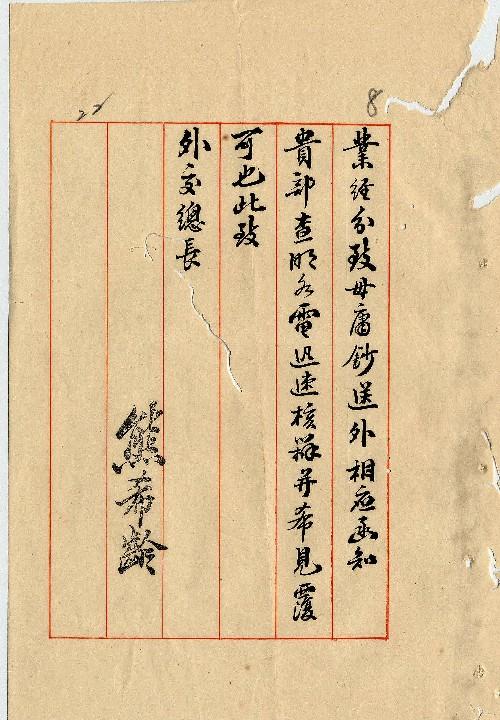 8
業經分致毋庸鈔送外相應函知
貴部查明各電迅速核辦并希見覆
可也此致
外交總長
熊希齡